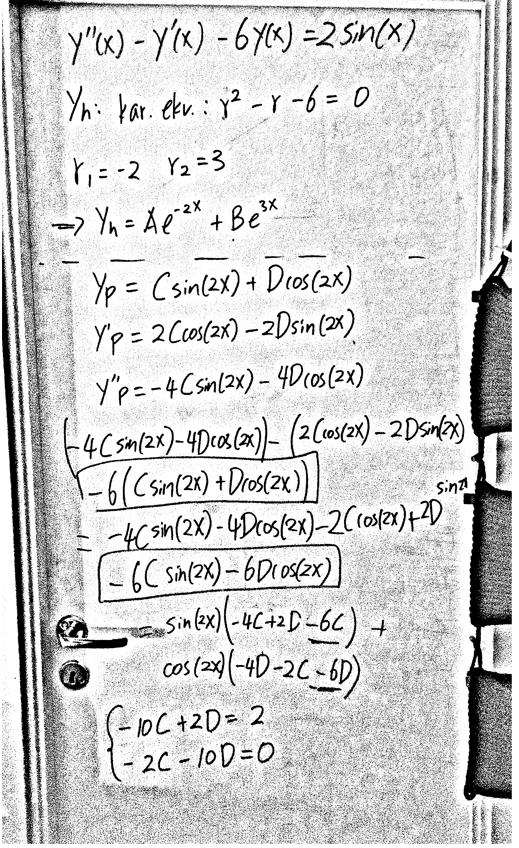 y''(x) - y'(x) - 6y(x) = 2 sin(x)
Yh: kar. ekv.: r² - r - 6 = 0
r₁ = -2 r₂ = 3
=> Yh = Ae⁻²ˣ + Be³ˣ
Yp = Csin(2x) + Dcos(2x)
Y'p = 2Ccos(2x) - 2Dsin(2x)
Y''p = -4Csin(2x) - 4Dcos(2x)
(-4Csin(2x) - 4Dcos(2x)) - (2Ccos(2x) - 2Dsin(2x)
-6(Csin(2x) + Dcos(2x))
= -4Csin(2x) - 4Dcos(2x) - 2Ccos(2x) + 2D
-6Csin(2x) - 6Dcos(2x)
= sin(2x)(-4C+2D-6C) +
cos(2x)(-4D-2C-6D)
{-10C + 2D = 2
-2C - 10D = 0